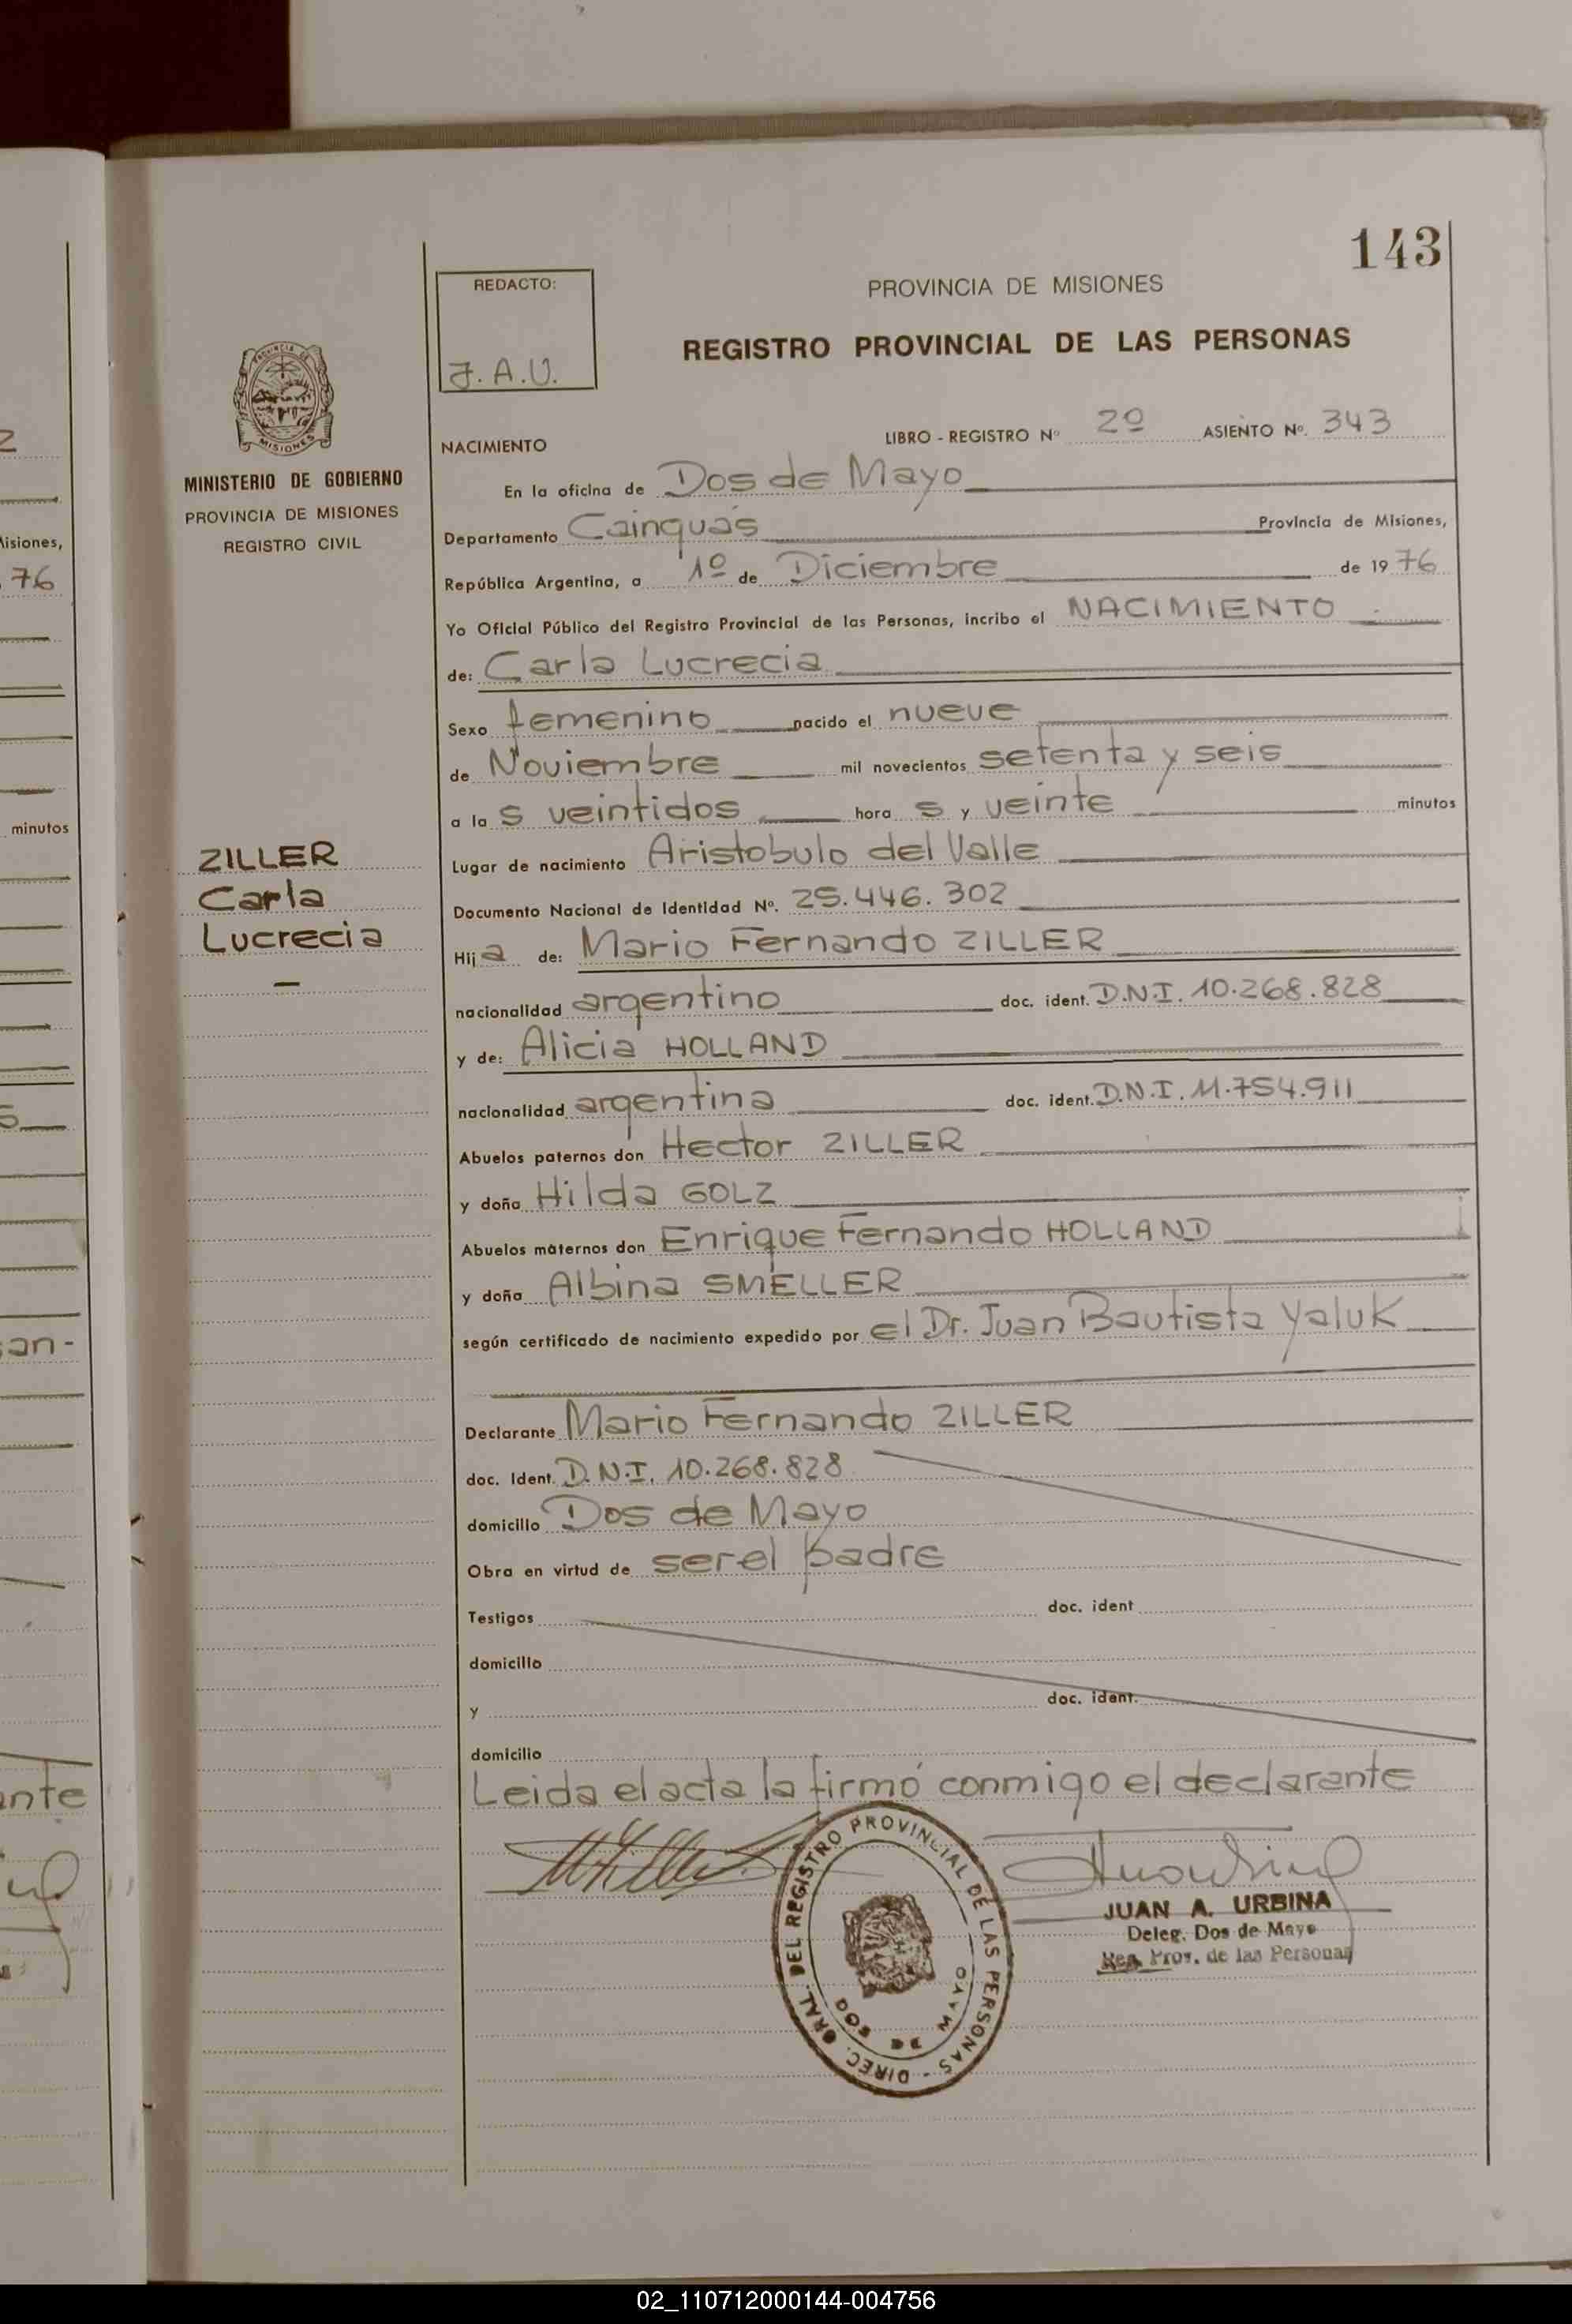 143
REDACTO:
J. A. U.
PROVINCIA DE MISIONES
REGISTRO PROVINCIAL DE LAS PERSONAS
PROVINCIA DE MISIONES
MINISTERIO DE GOBIERNO
PROVINCIA DE MISIONES
REGISTRO CIVIL
NACIMIENTO LIBRO - REGISTRO Nº 2º ASIENTO Nº. 343
En la oficina de Dos de Mayo
Departamento Cainguás Provincia de Misiones,
República Argentina, a 1º de Diciembre de 1976
Yo Oficial Público del Registro Provincial de las Personas, incribo el NACIMIENTO
de: Carla Lucrecia
Sexo femenino nacido el nueve
de Noviembre mil novecientos setenta y seis
a la s veintidos hora s y veinte minutos
ZILLER
Carla
Lucrecia
Lugar de nacimiento Aristobulo del Valle
Documento Nacional de Identidad Nº. 25.446.302
Hija de: Mario Fernando ZILLER
nacionalidad argentino doc. ident. D.N.I. 10.268.828
y de: Alicia HOLLAND
nacionalidad argentina doc. ident. D.N.I. 11.754.911
Abuelos paternos don Hector ZILLER
y doña Hilda GOLZ
Abuelos maternos don Enrique Fernando HOLLAND
y doña Albina SMELLER
según certificado de nacimiento expedido por el Dr. Juan Bautista Yaluk
Declarante Mario Fernando ZILLER
doc. Ident. D.N.I. 10.268.828
domicilio Dos de Mayo
Obra en virtud de ser el padre
Testigos doc. ident
domicilio
y doc. ident.
domicilio
Leida el acta la firmó conmigo el declarante
DIREC. GRAL. DEL REGISTRO PROVINCIAL DE LAS PERSONAS -
DOS DE MAYO
JUAN A. URBINA
Deleg. Dos de Mayo
Reg. Prov. de las Personas
Misiones,
76
minutos
02_110712000144-004756